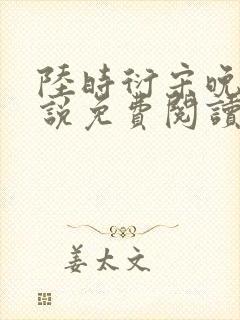 陸時衍宋晚
說免費閱讀
姜太文